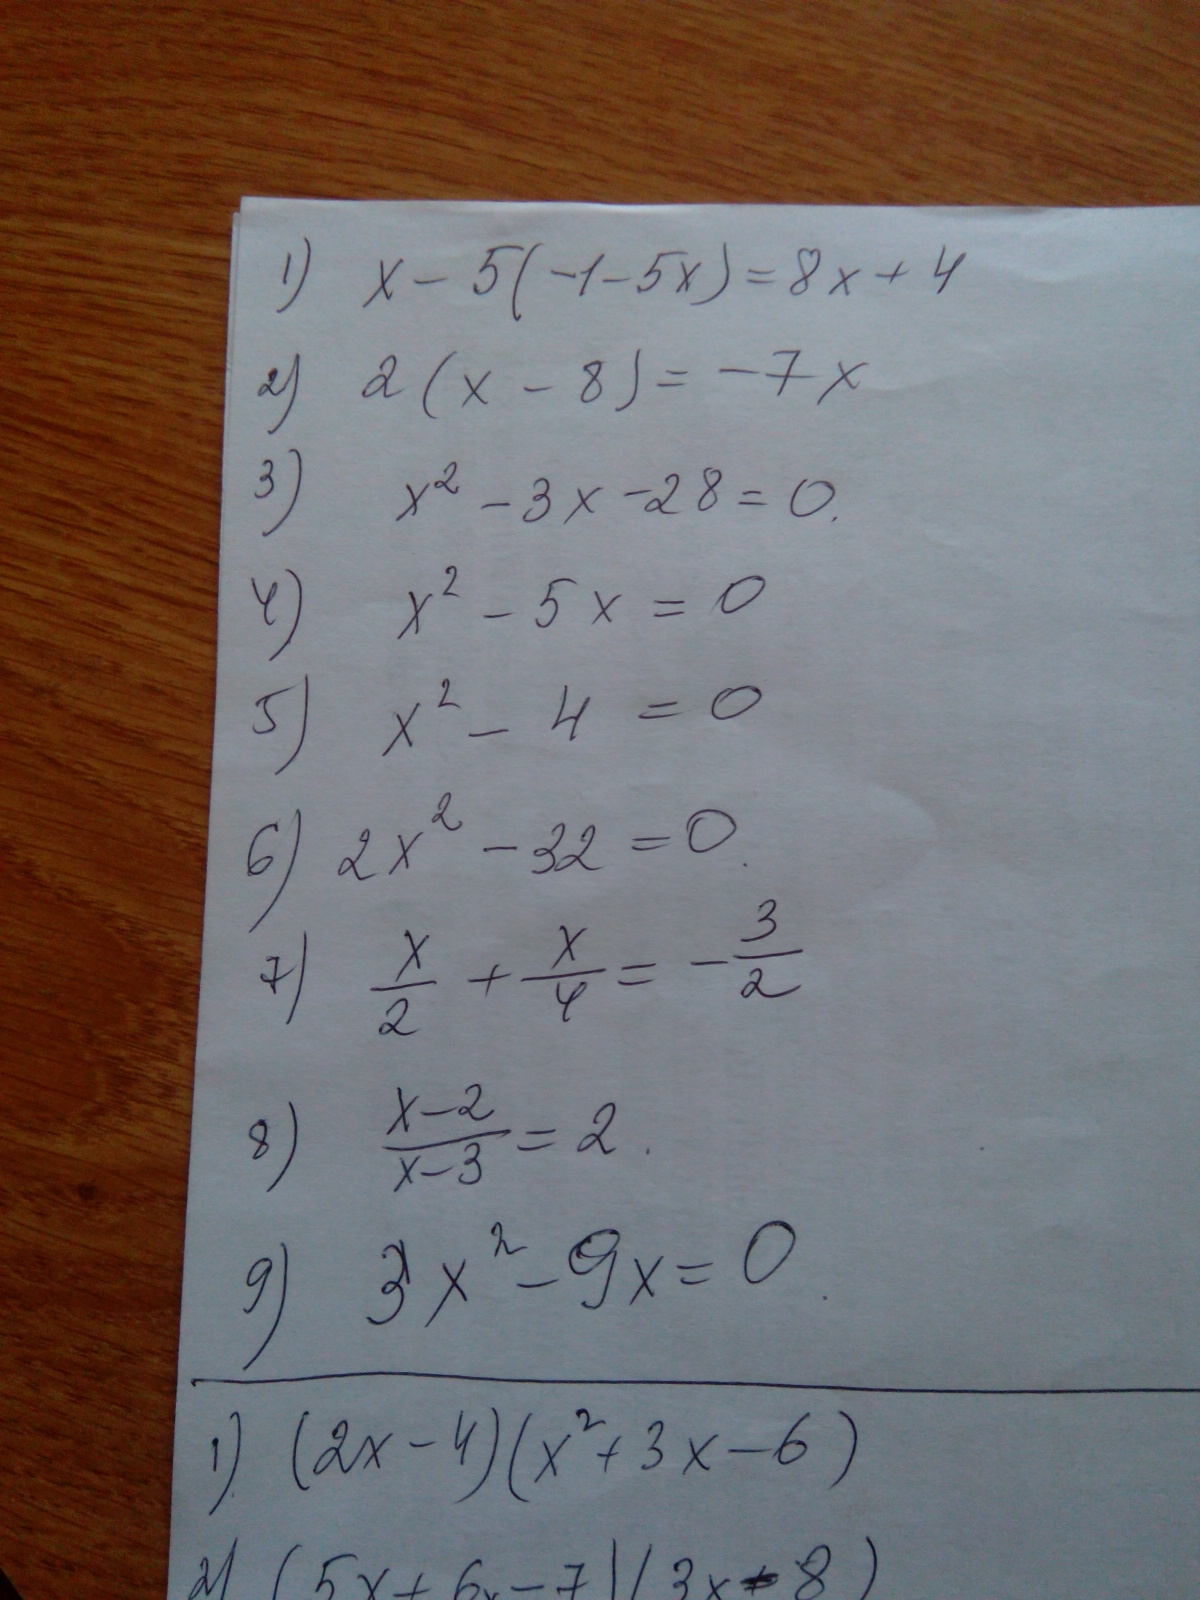 1) x - 5(-1-5x)=8x+4
2) 2(x - 8)= -7x
3) x² - 3x -28 = 0.
4) x² - 5x = 0
5) x² - 4 = 0
6) 2x² - 32 = 0.
7) x/2 + x/4 = - 3/2
8) x-2/x-3 = 2.
9) 3x² - 9x = 0.
1) (2x - 4)(x² + 3x - 6)
2) (5x + 6x - 7)(3x - 8)